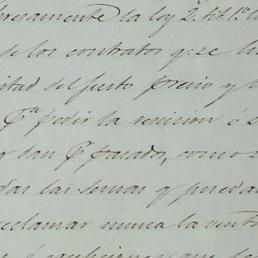 presamente la ley 2. tit. 1.
de los contratos que se ha
mitad del justo precio y
pa. pedir la recision ó
dan pr. pasados, como
das las demas q. puedan
reclamar nunca la vent